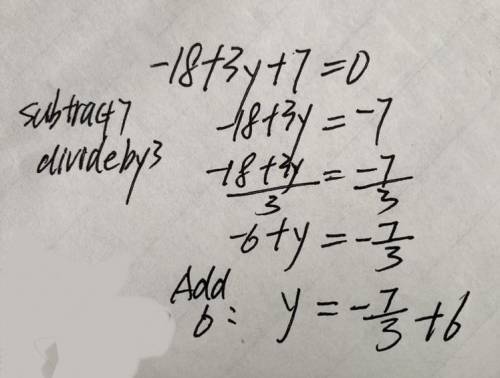 -18+3y+7=0
subtract 7 -18+3y=-7
divide by 3 -18+3y/3=-7/3
-6+y=-7/3
Add 6: y=-7/3+6